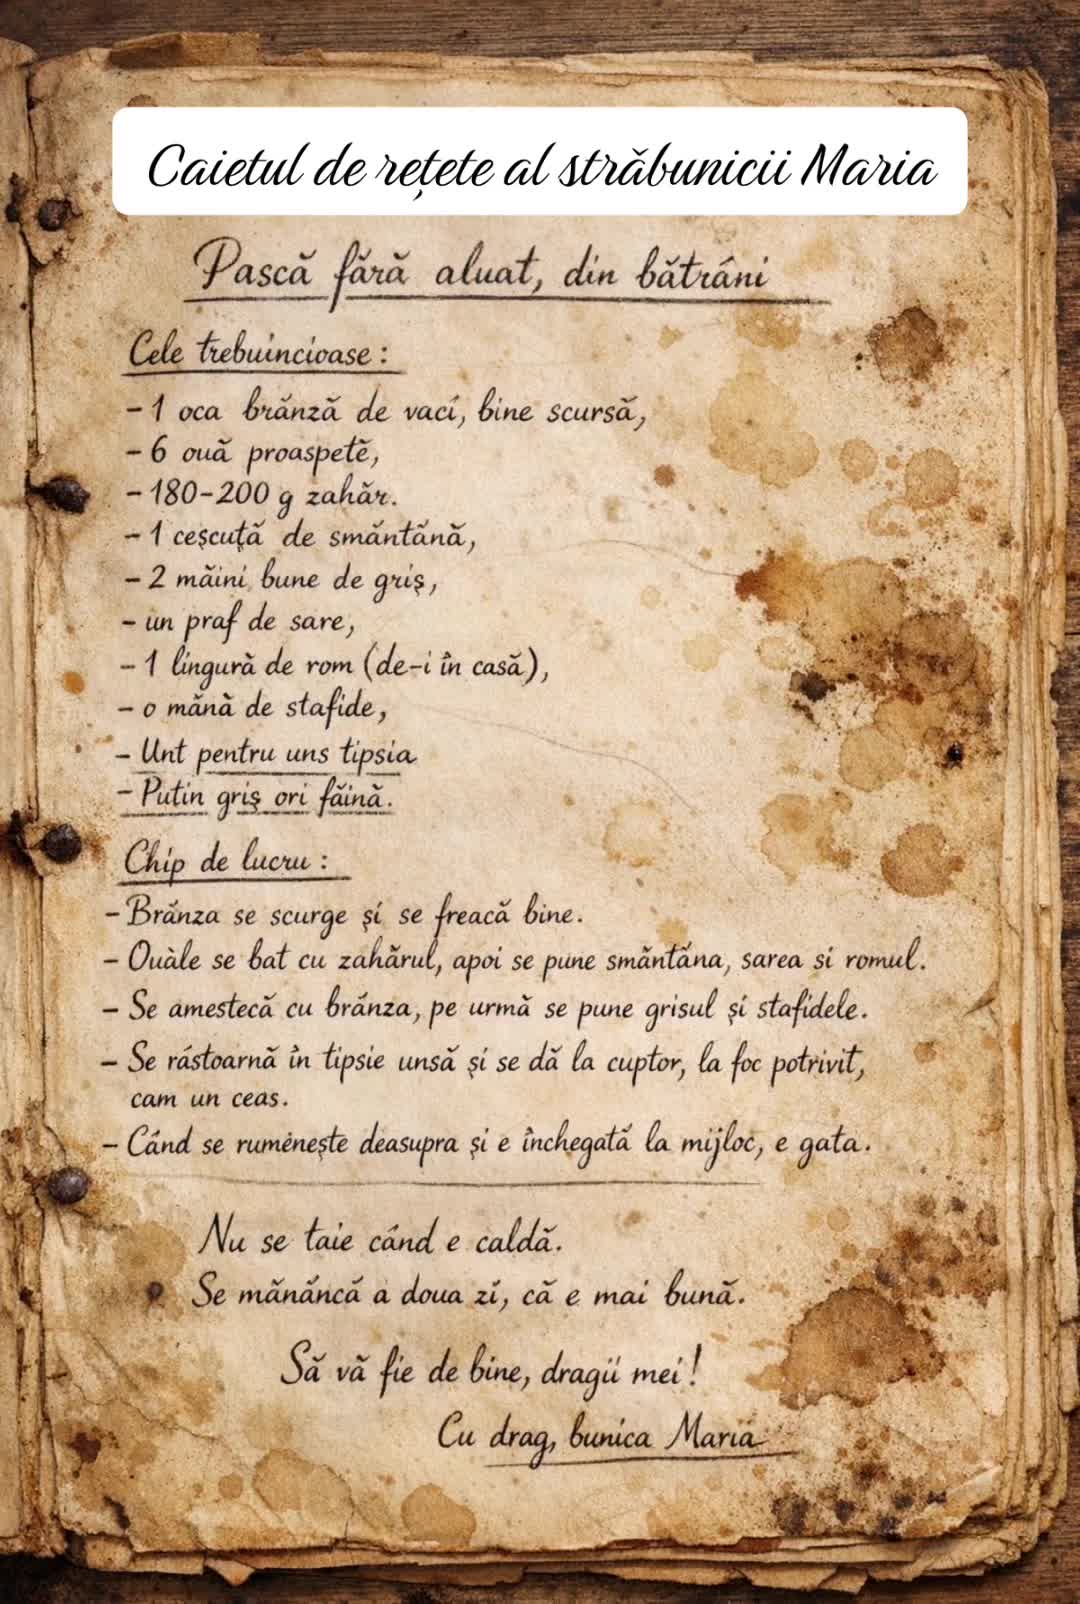 Caietul de rețete al străbunicii Maria
Pască fără aluat, din bătrâni
Cele trebuincioase:
- 1 oca brânză de vaci, bine scursă,
- 6 ouă proaspetĕ,
- 180-200 g zahăr.
- 1 ceșcuță de smăntănă,
- 2 măini bune de griș,
- un praf de sare,
- 1 lingură de rom (de-i în casă),
- o mănă de stafide,
- Unt pentru uns tipsia
- Putin griș ori făină.
Chip de lucru:
- Brănza se scurge și se freacă bine.
- Ouàle se bat cu zahărul, apoi se pune smăntăna, sarea si romul.
- Se amestecă cu brănza, pe urmă se pune grisul și stafidele.
- Se răstoarnă în tipsie unsă și se dă la cuptor, la foc potrivit,
cam un ceas.
- Când se rumenește deasupra și e închegată la mijloc, e gata.
Nu se taie când e caldă.
Se mănăncă a doua zi, că e mai bună.
Să vă fie de bine, dragii mei!
Cu drag, bunica Maria